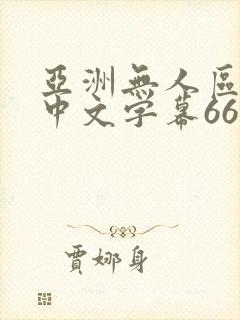 亞洲無人區
中文字幕66
賈娜身